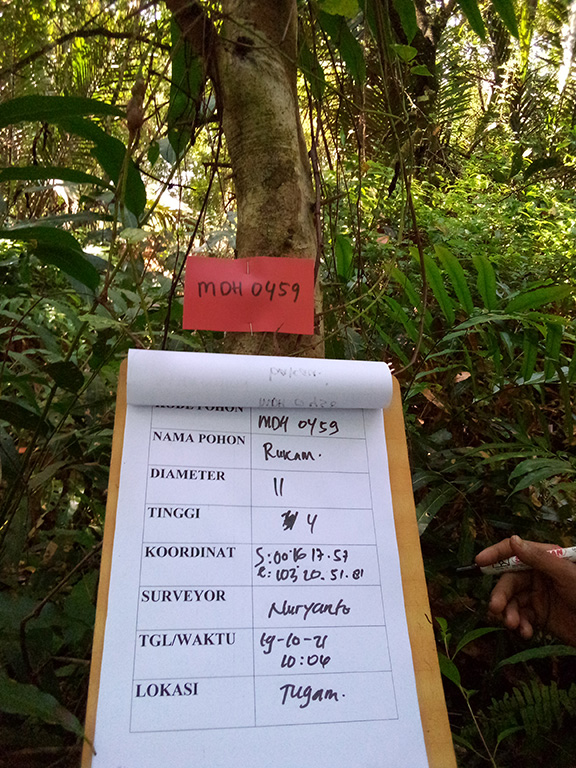 MDH 0459
KODE POHON MDH 0459
NAMA POHON Rukam.
DIAMETER 11
TINGGI 4
KOORDINAT S:00 16 17.57
E: 103, 20. 51. 81
SURVEYOR Nuryanto
TGL/WAKTU 19-10-21
10:06
LOKASI Tugam.